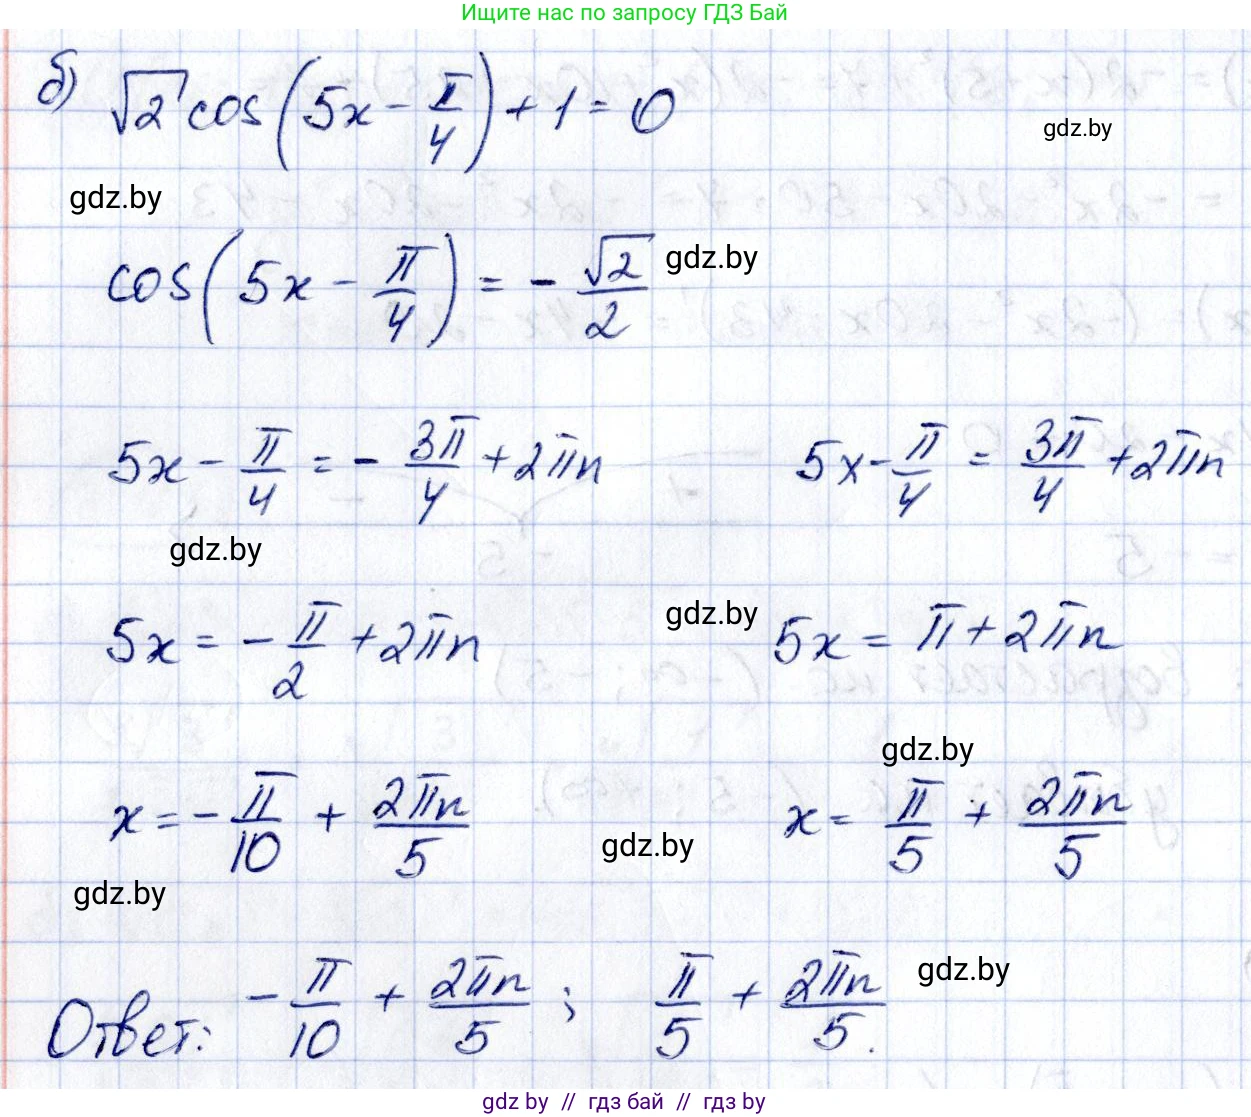 Ищите нас по запросу ГДЗ Бай
б) √2 cos(5x - π/4) + 1 = 0
gdz.by
gdz.by
cos(5x - π/4) = - √2/2
gdz.by
5x - π/4 = - 3π/4 + 2πn 5x - π/4 = 3π/4 + 2πn
gdz.by
gdz.by
5x = - π/2 + 2πn 5x = π + 2πn
gdz.by
x = - π/10 + 2πn/5 x = π/5 + 2πn/5
gdz.by
gdz.by
Ответ: - π/10 + 2πn/5 ; π/5 + 2πn/5.
gdz.by
gdz by // гдз бай // гдз by